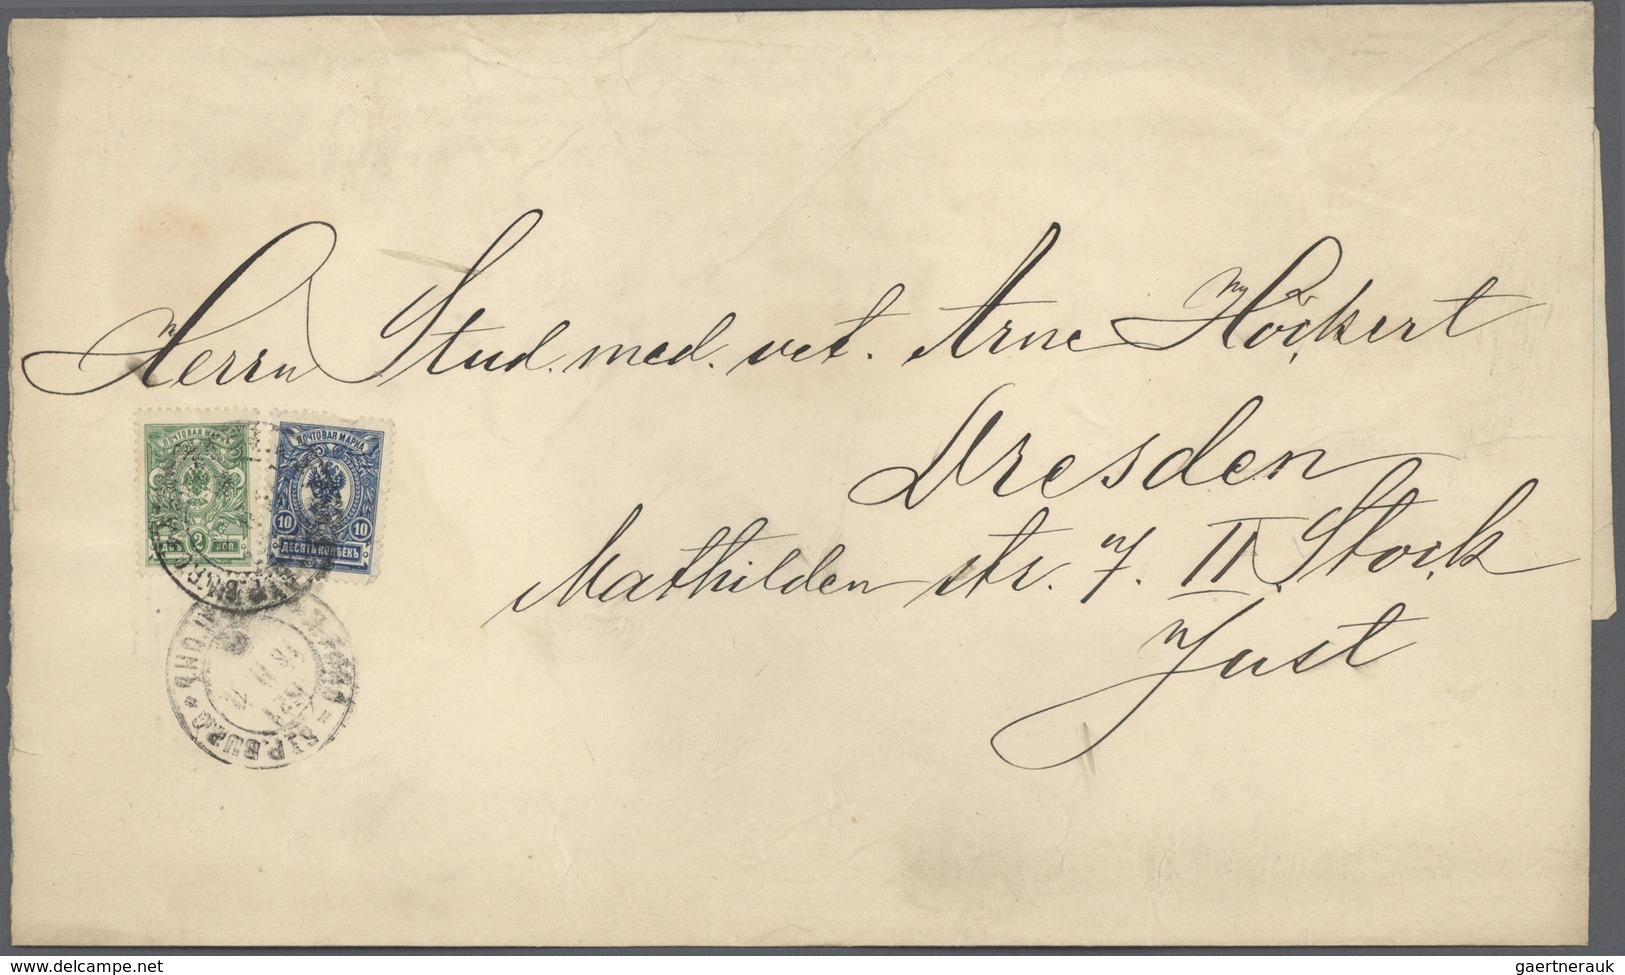 Herrn Stud. med. vet. Arne Höckert
Dresden
Mathilden str. 7. II Stock
Just
ПОЧТОВАЯ МАРКА
2 КОП.
ПОЧТОВАЯ МАРКА
10 10
ДЕСЯТЬ КОПѢЕКЪ
delcampe.net
gaertnerauk